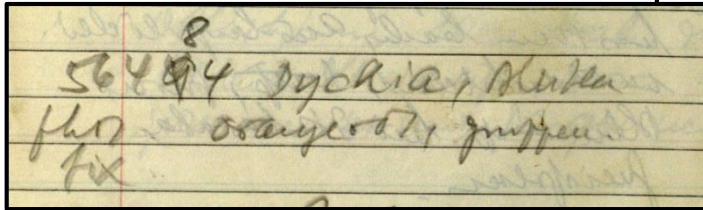 8
56494 Dyckia, Blüten
phot orangerot, gruppen.
fix